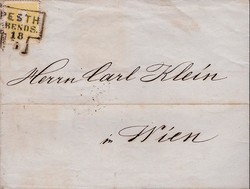 PESTH
ABENDS.
18
5
Herrn Carl Klein
in Wien